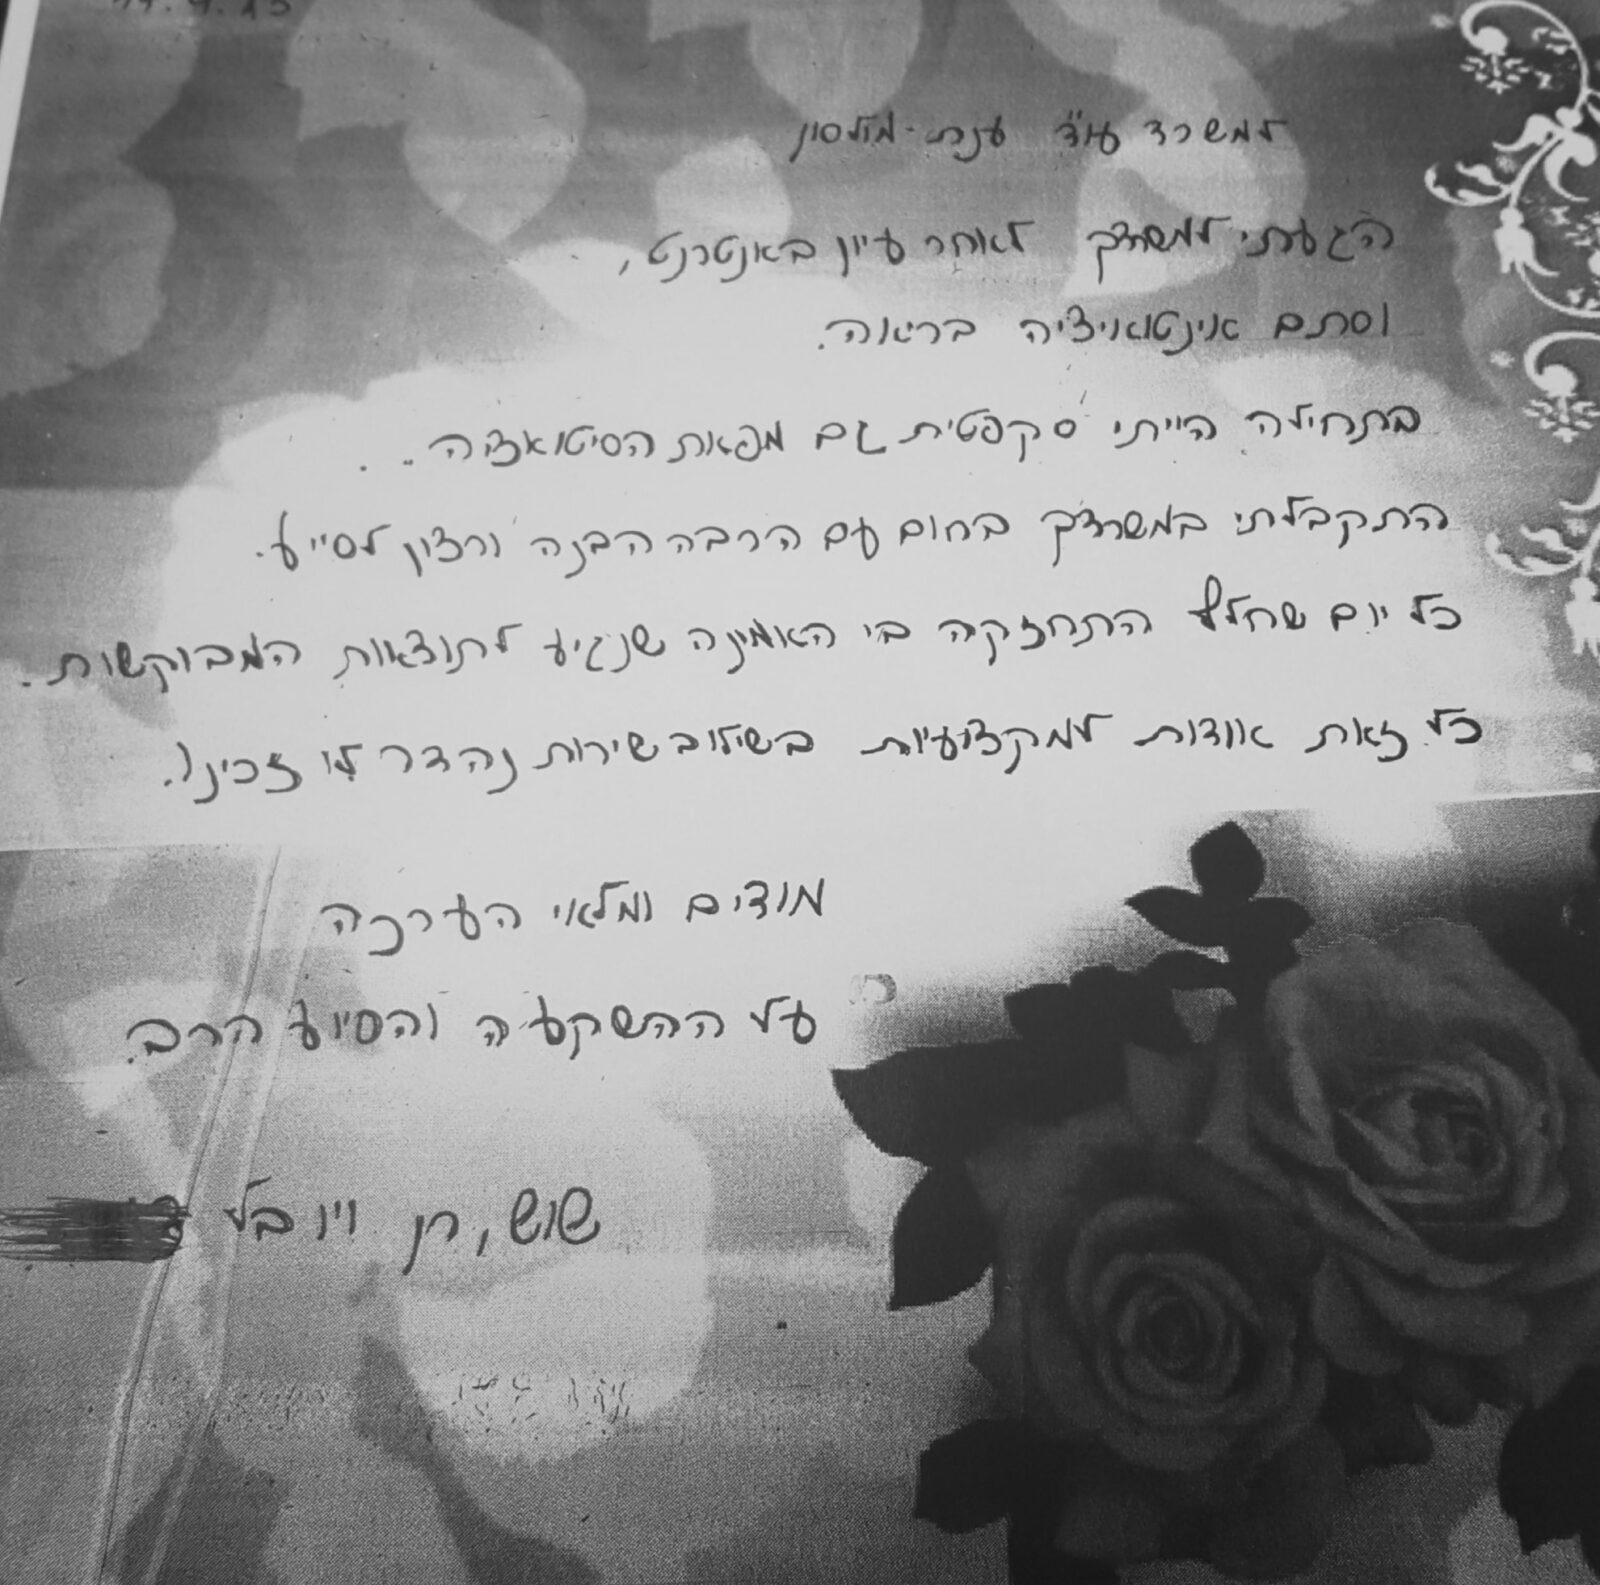 למשרד עו"ד ענת מולסון
הגעתי למשרדך לאחר עיון באנטרנט,
וסתם אינטואיציה בריאה.
בתחילה הייתי סקפטית גם מפאת הסיטואציה...
התקבלתי במשרדך בחום עם הרבה הבנה ורצון לסייע.
כל יום שחלף התחזקה בי האמונה שנגיע לתוצאות המבוקשות.
כל זאת אודות למקצועיות בשילוב שירות נהדר לו זכינו.
מודים ומלאי הערכה
על ההשקעה והסיוע הרב.
שוש, רן ויובל